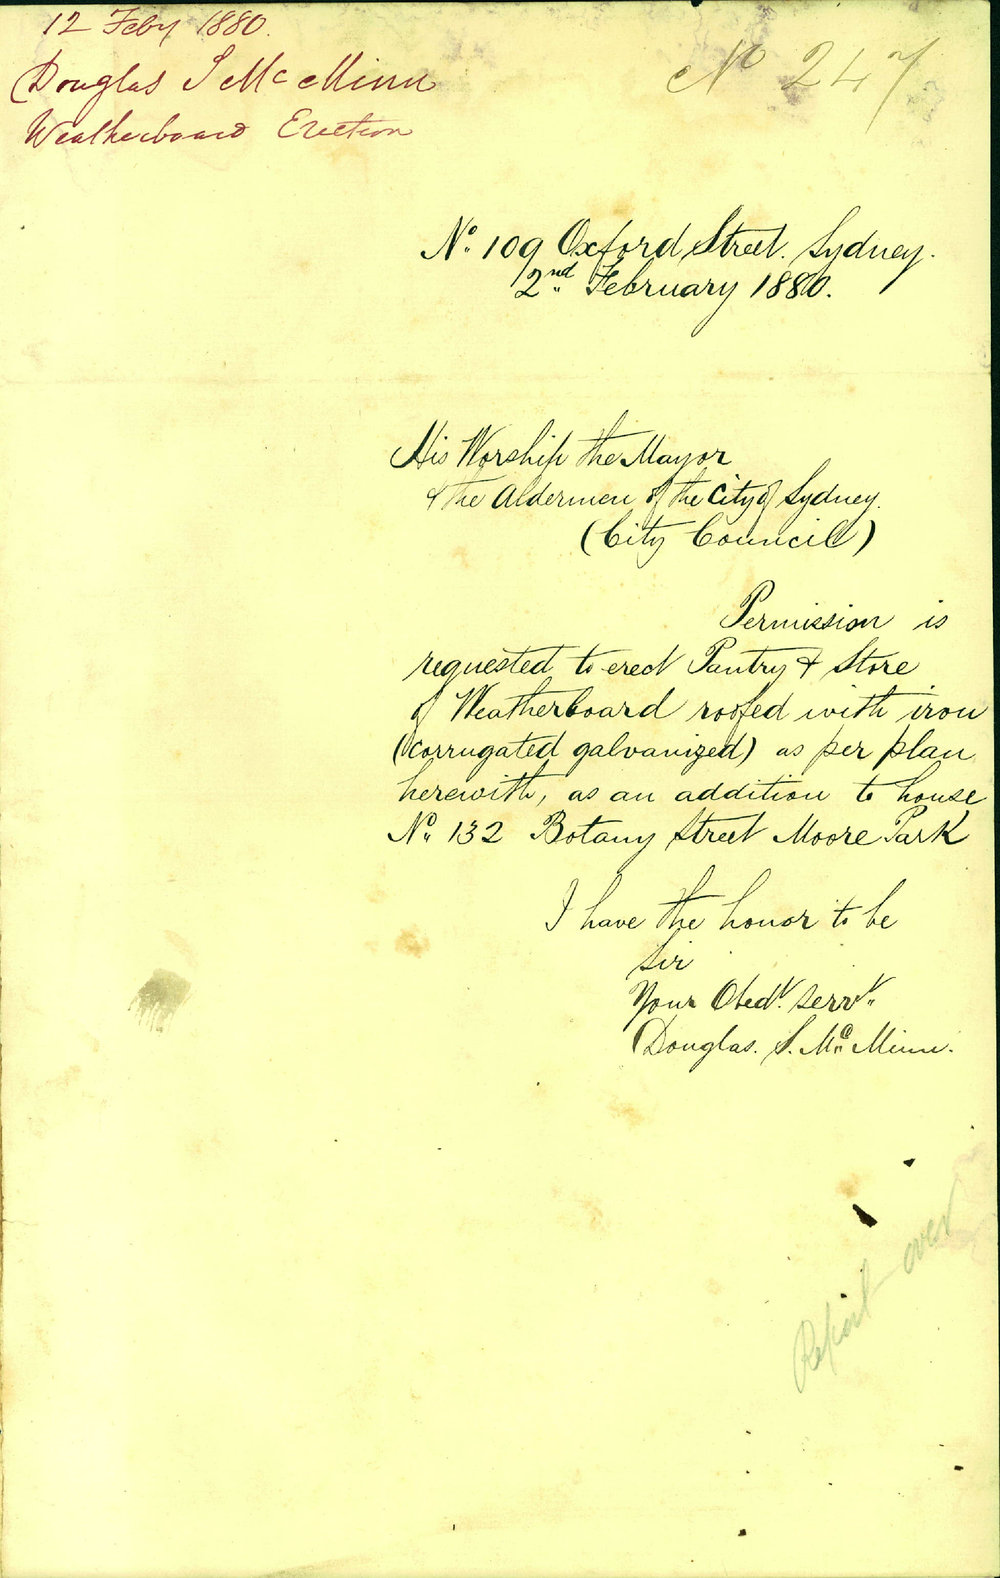 12 Feby 1880.
Douglas S McMinn
Weatherboard Erection
No 247
No. 109 Oxford Street. Sydney.
2nd February 1880.
His Worship the Mayor
& the Aldermen of the City of Sydney.
(City Council)
Permission is
requested to erect Pantry & Store
of Weatherboard roofed with iron
(corrugated galvanized) as per plan
herewith, as an addition to house
No. 132 Botany Street Moore Park
I have the honor to be
Sir
Your Obedt. servt.
Douglas. S. McMinn.
Report over